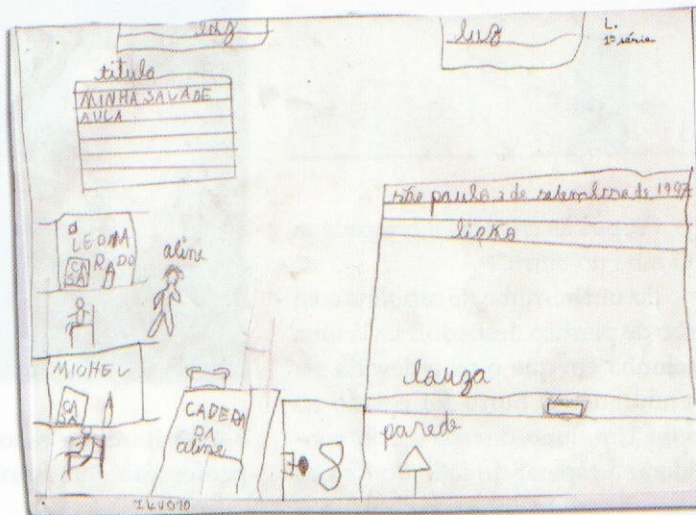 luz
luz
L.
1ª série
titulo
MINHA SALA DE
AULA
são paulo 2 de setembro de 1997
lipka
LEONA
RADO
CA
SA
aline
MICHEL
CA
SA
CADERA
DA
aline
8
lauza
parede